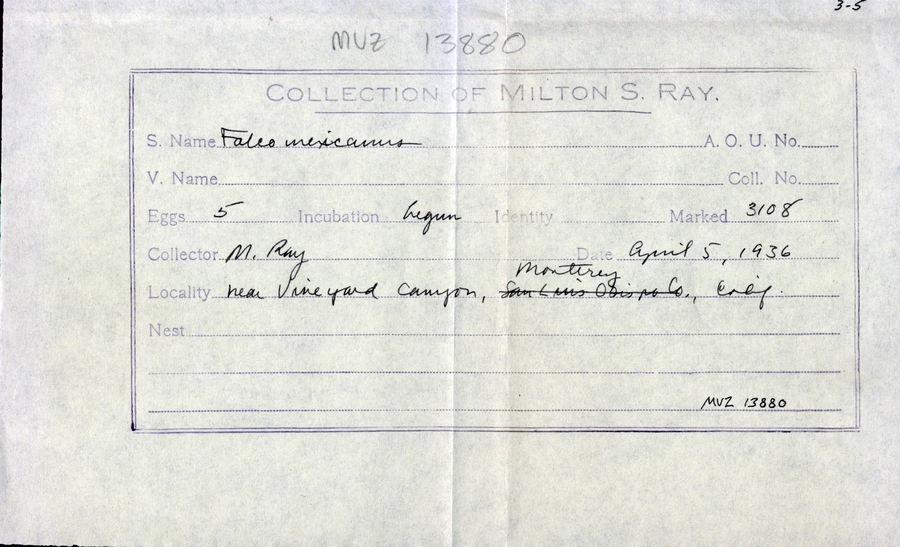 3-5
MUZ 13880
COLLECTION OF MILTON S. RAY.
S. Name Falco mexicanus A. O. U. No.
V. Name Coll. No.
Eggs 5 Incubation begun Identity Marked 3108
Collector M. Ray Date April 5, 1936
Monterey
Locality near Vineyard Canyon, San Luis Obispo Co., Calif.
Nest
MVZ 13880